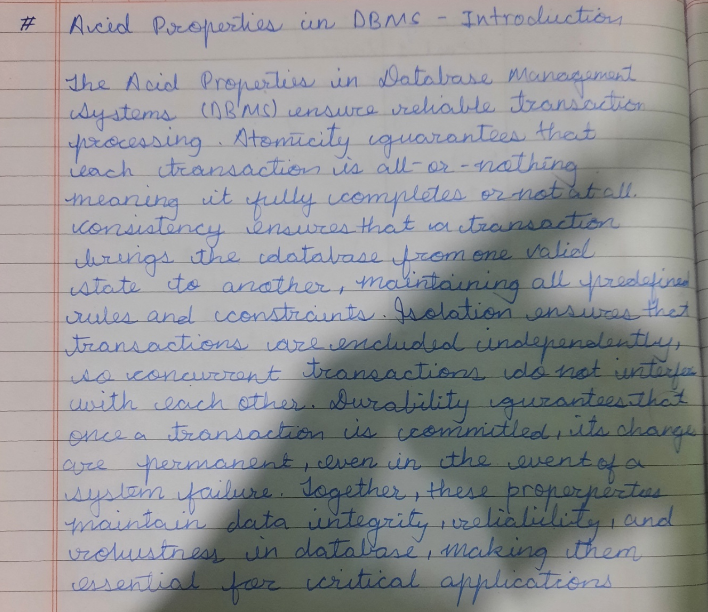 # Acid Properties in DBMS - Introduction
The Acid Properties in Database Management
Systems (DBMS) ensure reliable transaction
processing. Atomicity guarantees that
each transaction is all-or-nothing
meaning it fully completes or not at all.
consistency ensures that a transaction
brings the database from one valid
state to another, maintaining all predefined
rules and constraints. Isolation ensures that
transactions are encluded independently,
so concurrent transactions do not interfer
with each other. Durability gurantees that
once a transaction is committed, its change
are permanent, even in the event of a
system failure. Together, these properperties
maintain data integrity, reliability, and
robustness in database, making them
essential for critical applications